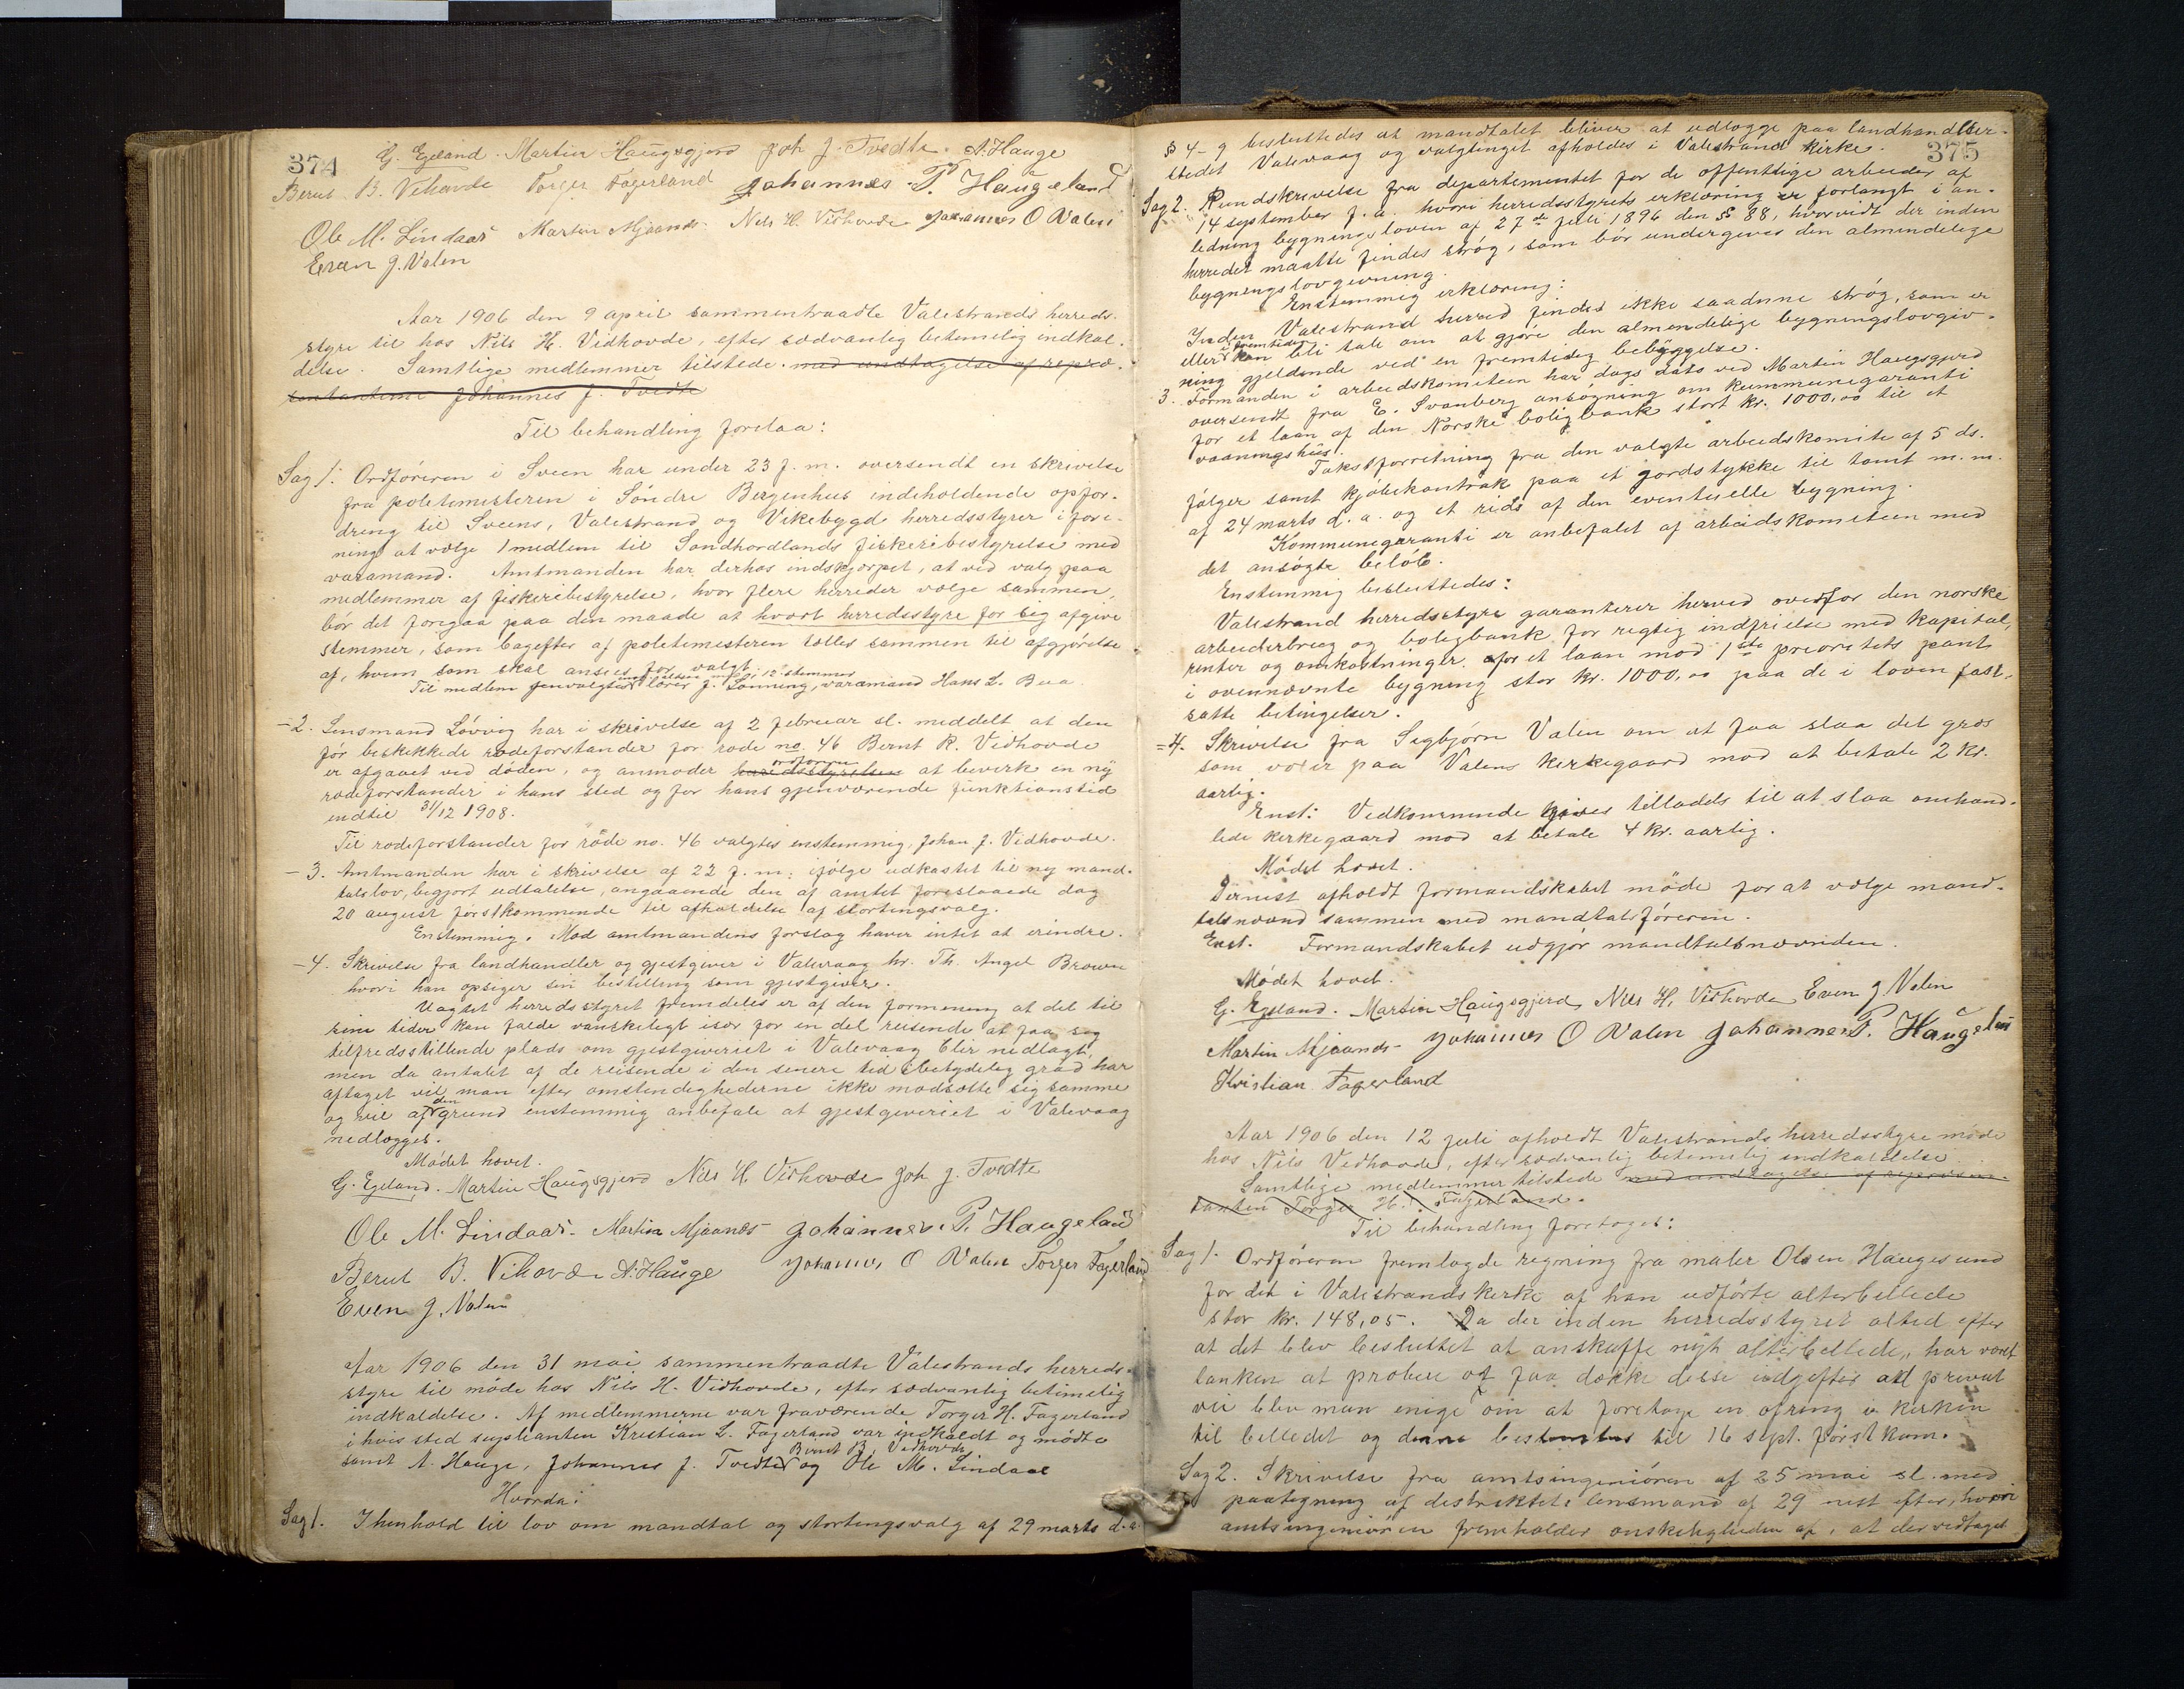 374
G. Egeland. Martin Haugsgjerd Joh J. Tvedte. A. Hauge
Bernt B. Vihovde Torger Fagerland Johannes P. Haugeland
Ole M. Lindaas Martin Mjaanes Nils H. Vidhovde Johannes O Valen
Even J. Valen
Aar 1906 den 9 april sammentraadte Valestrands herreds-
styre til hos Nils H. Vidhovde, efter sædvanlig betimelig indkal-
delse. Samtlige medlemmer tilstede. med undtagelse af repræ-
sentanterne Johannes J. Tvedte
Til behandling forelaa:
Sag 1. Ordføreren i Sveen har under 23 f. m. oversendt en skrivelse
fra politimesteren i Søndre Bergenhus indeholdende opfor-
dring til Sveens, Valestrand og Vikebygd herredsstyrer i fore-
ning at vælge 1 medlem til Sondhordlands fiskeribestyrelse med
varamand. Amtmanden har derhos indskjærpet, at ved valg paa
medlemmer af fiskeribestyrelse, hvor flere herreder vælge sammen,
bør det foregaa paa den maade at hvert herredsstyre for sig afgive
stemmer, som bagefter af politimesteren tælles sammen til afgjørelse
af, hvem som skal ansees for valgt.
Til medlem gjenvalgtes lærer J. Lønning, varamand Hans L. Bua. 12 stemmer
- 2. Lensmand Løvvig har i skrivelse af 2 februar sl. meddelt at den
før beskikkede rodeforstander for rode no. 46 Bernt R. Vidhovde
er afgaaet ved døden, og anmoder herredsstyrelsen ordføreren at bevirk en ny
rodeforstander i hans sted og for hans gjenværende funktionstid
indtil 31/12 1908.
Til rodeforstander for rode no. 46 valgtes enstemmig Johan J. Vidhovde.
- 3. Amtmanden har i skrivelse af 22 f. m. ifølge udkastet til ny mand-
talslov, begjært udtalelse, angaaende den af amtet foreslaaede dag
20 august førstkommende til afholdelse af stortingsvalg.
Enstemmig. Mod amtmandens forslag haves intet at erindre.
- 4. Skrivelse fra landhandler og gjestgiver i Valevaag hr. Th. Angel Brown
hvori han opsiger sin bestilling som gjestgiver.
Uagtet herredsstyret fremdeles er af den formening at det til
sine tider kan falde vanskeligt især for en del reisende at faa sig
tilfredsstillende plads om gjestgiveriet i Valevaag blir nedlagt,
men da antalet af de reisende i den senere tid i betydelig grad har
aftaget vil man efter omstendighederne ikke modsætte sig samme
og vil af den grund enstemmig anbefale at gjestgiveriet i Valevaag
nedlægges.
Mødet hævet.
G. Egeland. Martin Haugsgjerd Nils H. Vidhovde Joh J. Tvedte
Ole M. Lindaas. Martin Mjaanes Johannes P. Haugeland
Bernt B. Vihovde A. Hauge Johannes O Valen Torger Fagerland
Even J. Valen
Aar 1906 den 31 mai sammentraadte Valestrands herreds-
styre til møde hos Nils H. Vidhovde, efter sædvanlig betimelig
indkaldelse. Af medlemmerne var fraværende Torger H. Fagerland
i hvis sted supleanten Kristian L. Fagerland var indkaldt og mødte
samt A. Hauge, Johannes J. Tvedte Bernt B. Vidhovde og Ole M. Lindaas
Hvorda:
Sag 1. I henhold til lov om mandtal og stortingsvalg af 29 marts d. a.
375
§ 4 - 9 besluttedes at mandtalet bliver at udlægge paa landhandler-
stedet Valevaag og valgtinget afholdes i Valestrand kirke.
Sag 2. Rundskrivelse fra departementet for de offentlige arbeider af
14 september f. a. hvori herredsstyrets erklæring er forlangt i an-
ledning bygningsloven af 27de juli 1896 den § 88, hvorvidt der inden
herredet maatte findes strøg, som bør undergives den almindelige
bygningslovgivning.
Enstemmig erklæring:
Inden Valestrand herred findes ikke saadanne strøg, som er
eller i fremtiden kan bli tale om at gjøre den almindelige bygningslovgiv-
ning gjeldende ved en fremtidig bebyggelse.
3. Formanden i arbeidskomiteen har dags dato ved Martin Haugsgjerd
oversendt fra E. Svanberg ansøgning om kommunegaranti
for et laan af den Norske boligbank stort kr. 1000,00 til et
vaaningshus.
Takstforretning fra den valgte arbeidskomite af 5 ds.
følger samt kjøbekontrak paa et jordstykke til tomt m. m.
af 24 marts d. a. og et rids af den eventuelle bygning.
Kommunegaranti er anbefalet af arbeidskomiteen med
det ansøgte beløb.
Enstemmig besluttedes:
Valestrand herredsstyre garanterer herved overfor den norske
arbeiderbrug og boligbank for rigtig indfrielse med kapital,
renter og omkostninger for et laan mod 1ste prioritets pant
i ovennævnte bygning stor kr. 1000,00 paa de i loven fast-
satte betingelser.
= 4. Skrivelse fra Sigbjørn Valen om at faa slaa det græs
som voxer paa Valens kirkegaard mod at betale 2 kr.
aarlig.
Enst: Vedkommende gives tilladels til at slaa omhand-
lede kirkegaard mod at betale 4 kr. aarlig.
Mødet hævet.
Dernest afholdt formandskabet møde for at vælge mand-
talsnævnd sammen med mandtalsføreren.
Enst. Formandskabet udgjør mandtalsnævnden.
Mødet hævet.
G. Egeland. Martin Haugsgjerd Nils H. Vidhovde Even J Valen
Martin Mjaanes Johannes O Valen Johannes P. Haugeland
Kristian Fagerland
Aar 1906 den 12 juli afholdt Valestrands herredsstyre møde
hos Nils Vedhovde, efter sædvanlig betimelig indkaldelse.
Samtlige medlemmer tilstede med undtagelse af represen-
tanten Torger H. Fagerland.
Til behandling foretoges:
Sag 1. Ordføreren fremlagde regning fra maler Olsen Haugesund
for det i Valestrandskirke af han udførte alterbellede
stor kr. 148,05. Da der inden herredsstyret altid efter
at det blev besluttet at anskaffe nyt alterbellede, har været
tanken at prøve at faa dække disse udgifter ad privat
vei blev man enige om at foretage en ofring i kirken
til belledet og denne bestemtes til 16 sept. førstkom.
Sag 2. Skrivelse fra amtsingeniøren af 25 mai sl. med
paategning af distriktets lensmand af 29 nest efter, hvori
amtsingeniøren fremholder ønskeligheden af, at der vedtaget